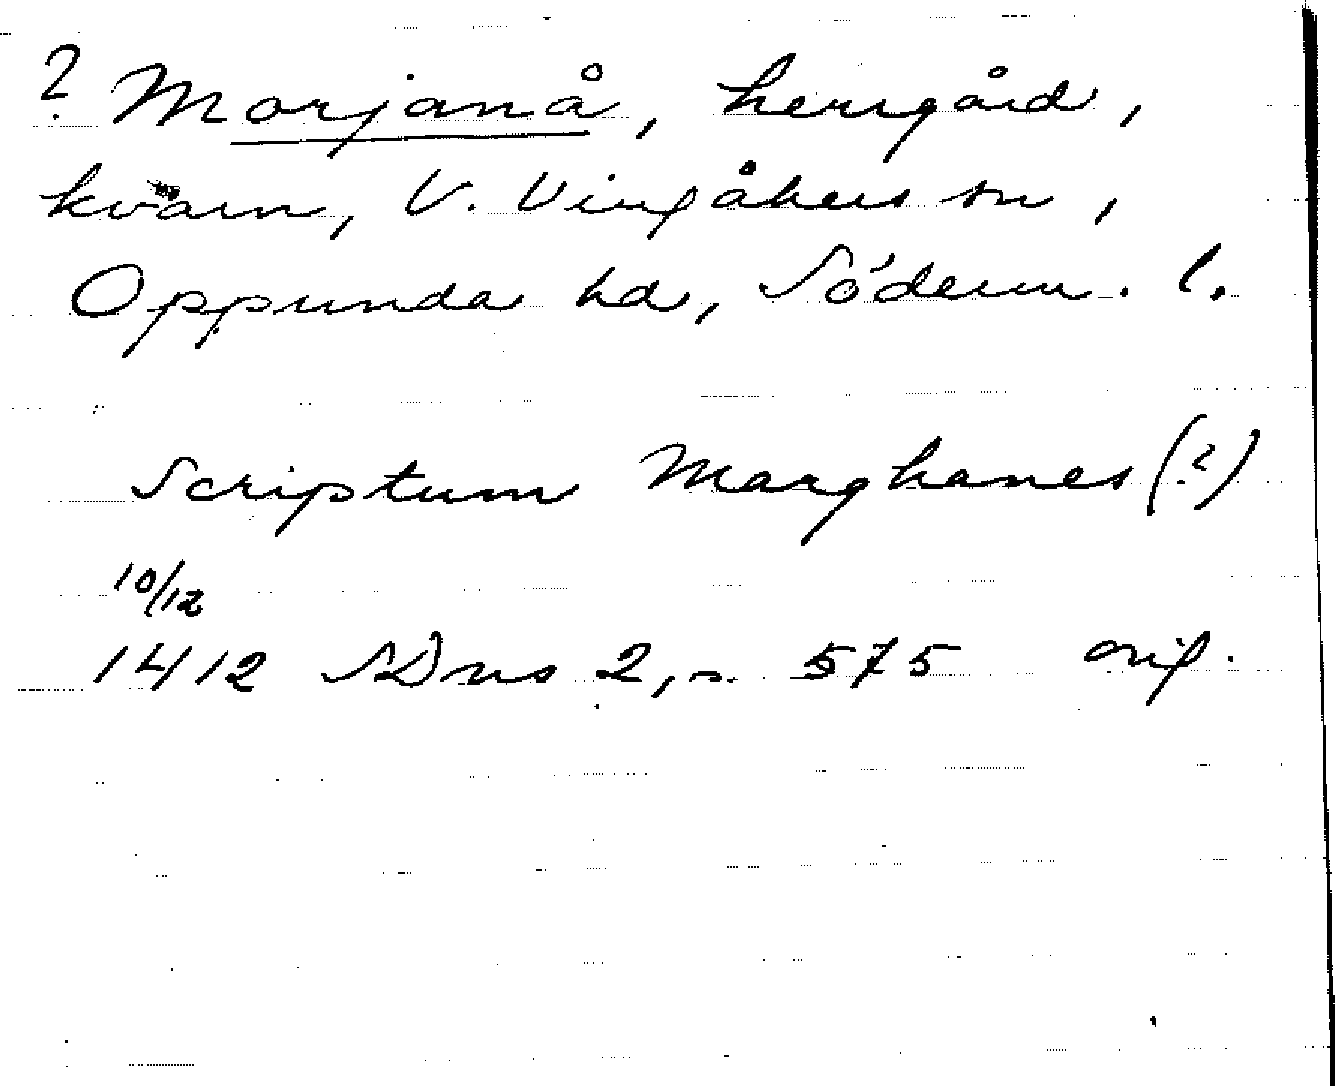 ? Morjanå, herrgård,
kvarn, V. Vingåkers sn,
Oppunda hd, Söderm. l.
Scriptum Marghanes (?)
10/12
1412 SDns 2, s. 575 orig.